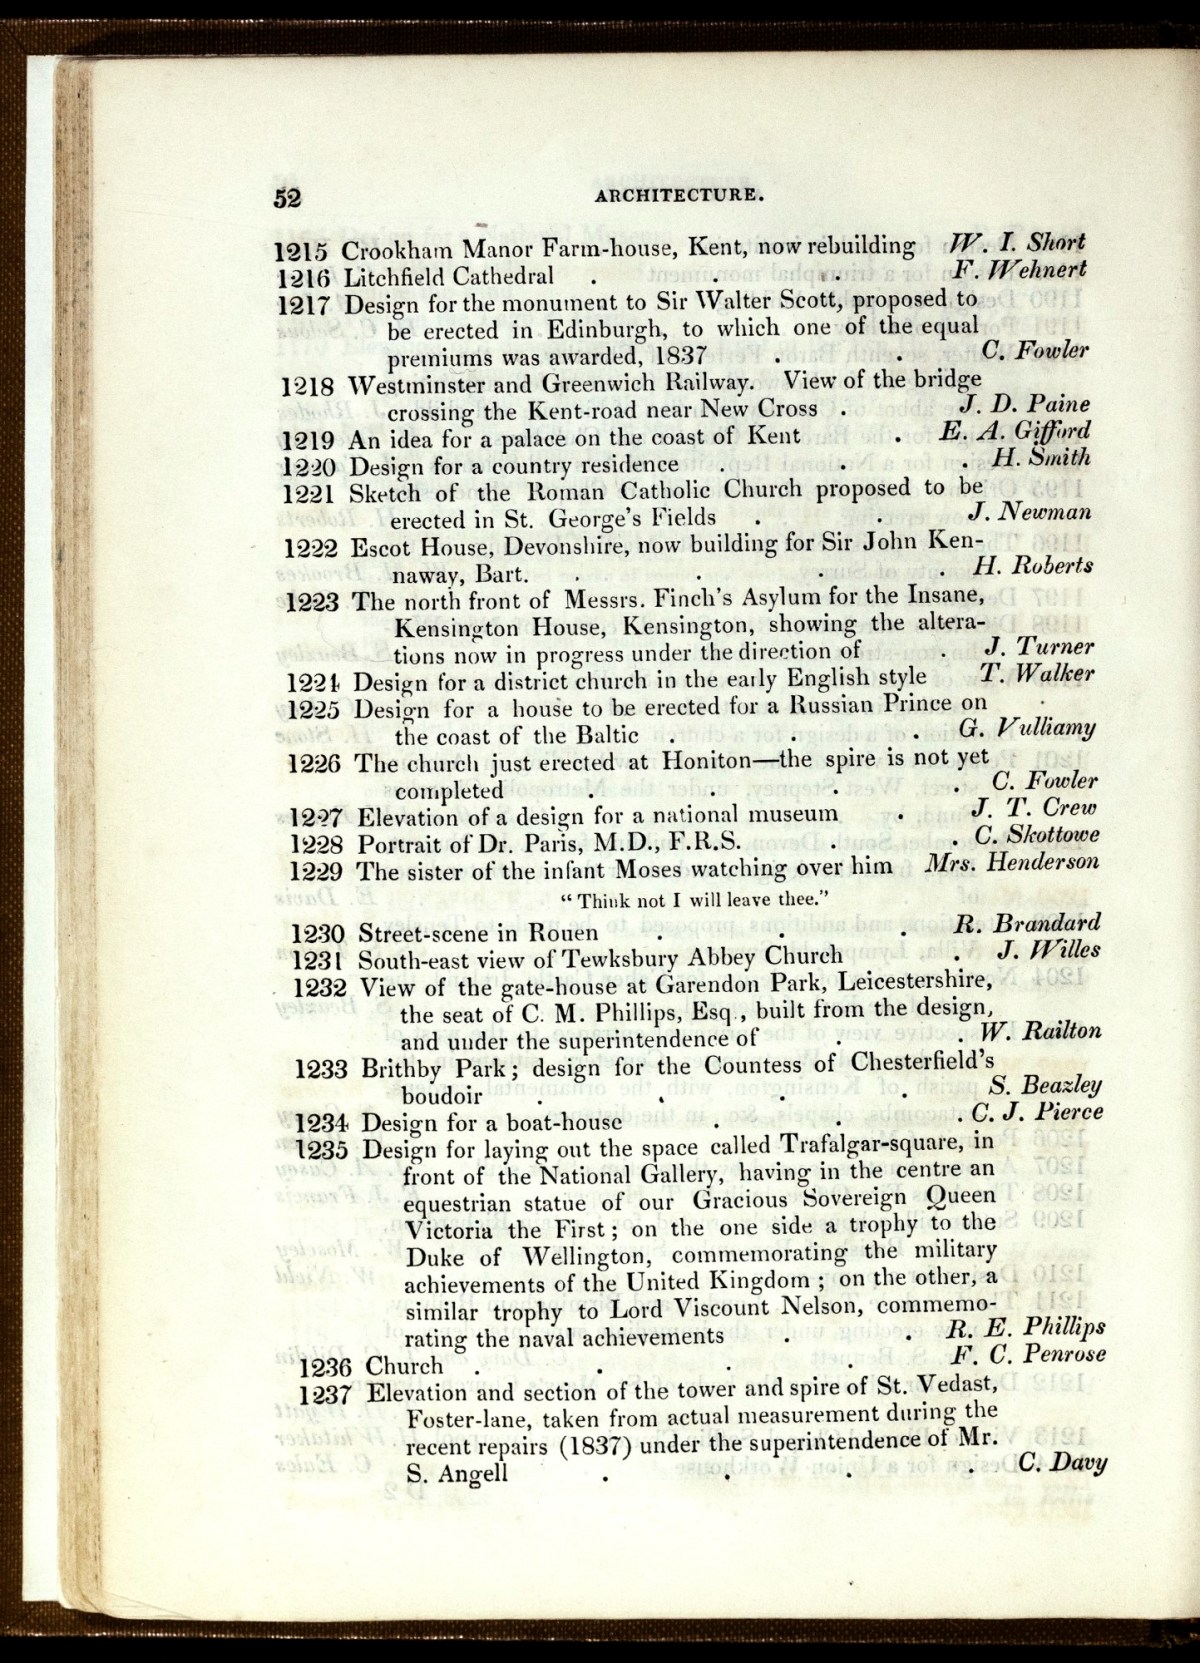 52 ARCHITECTURE.
1215 Crookham Manor Farm-house, Kent, now rebuilding W. I. Short
1216 Litchfield Cathedral . . . F. Wehnert
1217 Design for the monument to Sir Walter Scott, proposed to
be erected in Edinburgh, to which one of the equal
premiums was awarded, 1837 . . C. Fowler
1218 Westminster and Greenwich Railway. View of the bridge
crossing the Kent-road near New Cross . J. D. Paine
1219 An idea for a palace on the coast of Kent . E. A. Gifford
1220 Design for a country residence . . . H. Smith
1221 Sketch of the Roman Catholic Church proposed to be
erected in St. George's Fields . . J. Newman
1222 Escot House, Devonshire, now building for Sir John Ken-
naway, Bart. . . . . H. Roberts
1223 The north front of Messrs. Finch's Asylum for the Insane,
Kensington House, Kensington, showing the altera-
tions now in progress under the direction of . J. Turner
1224 Design for a district church in the early English style T. Walker
1225 Design for a house to be erected for a Russian Prince on
the coast of the Baltic . . . G. Vulliamy
1226 The church just erected at Honiton—the spire is not yet
completed . . . . C. Fowler
1227 Elevation of a design for a national museum . J. T. Crew
1228 Portrait of Dr. Paris, M.D., F.R.S. . . C. Skottowe
1229 The sister of the infant Moses watching over him Mrs. Henderson
“ Think not I will leave thee.”
1230 Street-scene in Rouen . . . R. Brandard
1231 South-east view of Tewksbury Abbey Church . J. Willes
1232 View of the gate-house at Garendon Park, Leicestershire,
the seat of C. M. Phillips, Esq., built from the design,
and under the superintendence of . . W. Railton
1233 Brithby Park; design for the Countess of Chesterfield's
boudoir . . . . S. Beazley
1234 Design for a boat-house . . . C. J. Pierce
1235 Design for laying out the space called Trafalgar-square, in
front of the National Gallery, having in the centre an
equestrian statue of our Gracious Sovereign Queen
Victoria the First; on the one side a trophy to the
Duke of Wellington, commemorating the military
achievements of the United Kingdom; on the other, a
similar trophy to Lord Viscount Nelson, commemo-
rating the naval achievements . . R. E. Phillips
1236 Church . . . . F. C. Penrose
1237 Elevation and section of the tower and spire of St. Vedast,
Foster-lane, taken from actual measurement during the
recent repairs (1837) under the superintendence of Mr.
S. Angell . . . . C. Davy